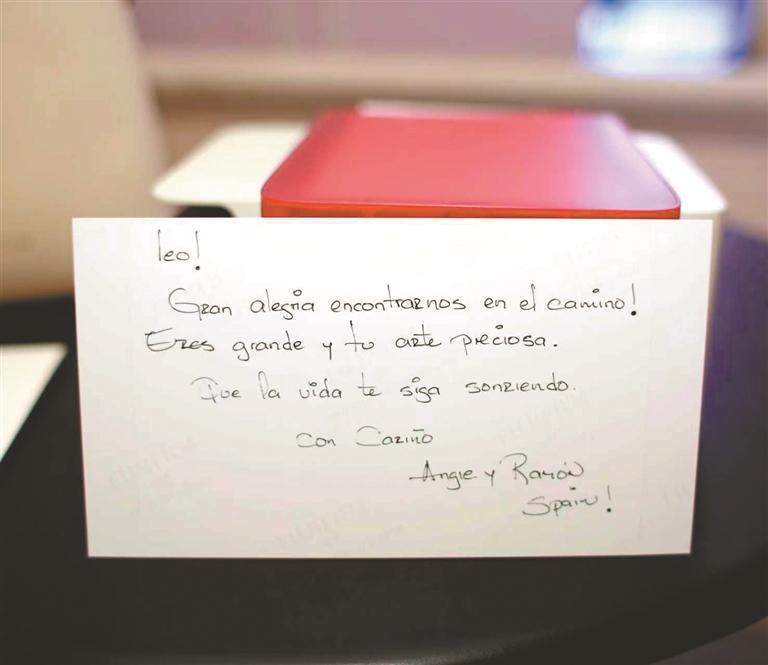 leo!
Gran alegria encontrarnos en el camino!
Eres grande y tu arte preciosa.
Que la vida te siga sonriendo.
con Cariño
Angie y Ramón
Spain!